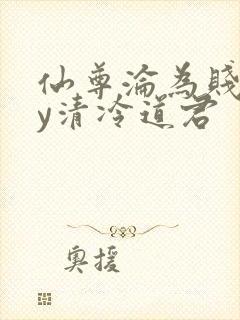 仙尊淪為賤
y清冷道君
奧援